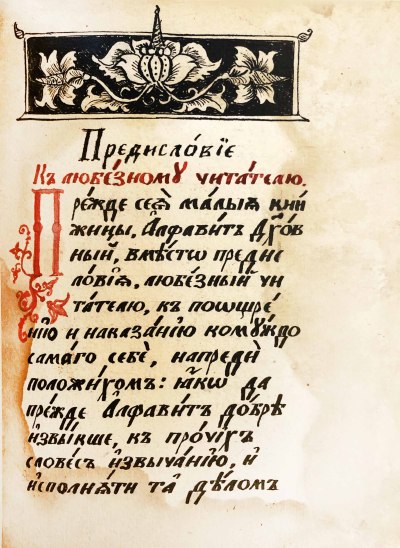 Предисло́вїе
Къ любе́зному чита́телю.
Пре́жде сеѧ̀ ма́лыѧ кни́
жицы, Алфави́тъ Дꙋхо́в
ный, вмѣ́стѡ предис
ло́вїѧ, любе́зный чи
та́телю, къ поѡщре́
нїю и наказа́нїю комꙋ́ждо
сама́го себѐ, напредѝ
положи́хомъ: ꙗ҆́кѡ да
пре́жде Алфави́тъ до́брѣ
и҆звы́кше, къ про́чїхъ
слове́съ и҆звыча́нїю, и҆
и҆сполнѧ́ти та̀ дѣ́ломъ